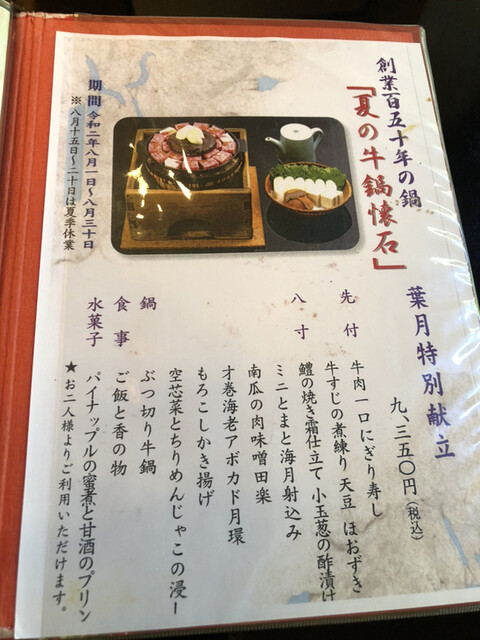 創業百五十年の鍋
「夏の牛鍋懐石」
期間 令和二年八月一日~八月三十日
※八月十五日~二十日は夏季休業
葉月特別献立
九、三五〇円（税込）
先付 牛肉一口にぎり寿し
牛すじの煮練り 天豆 ほおずき
八寸 鱧の焼き霜仕立て 小玉葱の酢漬け
ミニとまと海月射込み
南瓜の肉味噌田楽
才巻海老アボカド月環
もろこしかき揚げ
空芯菜とちりめんじゃこの浸し
鍋 ぶつ切り牛鍋
食事 ご飯と香の物
水菓子 パイナップルの蜜煮と甘酒のプリン
★お二人様よりご利用いただけます。